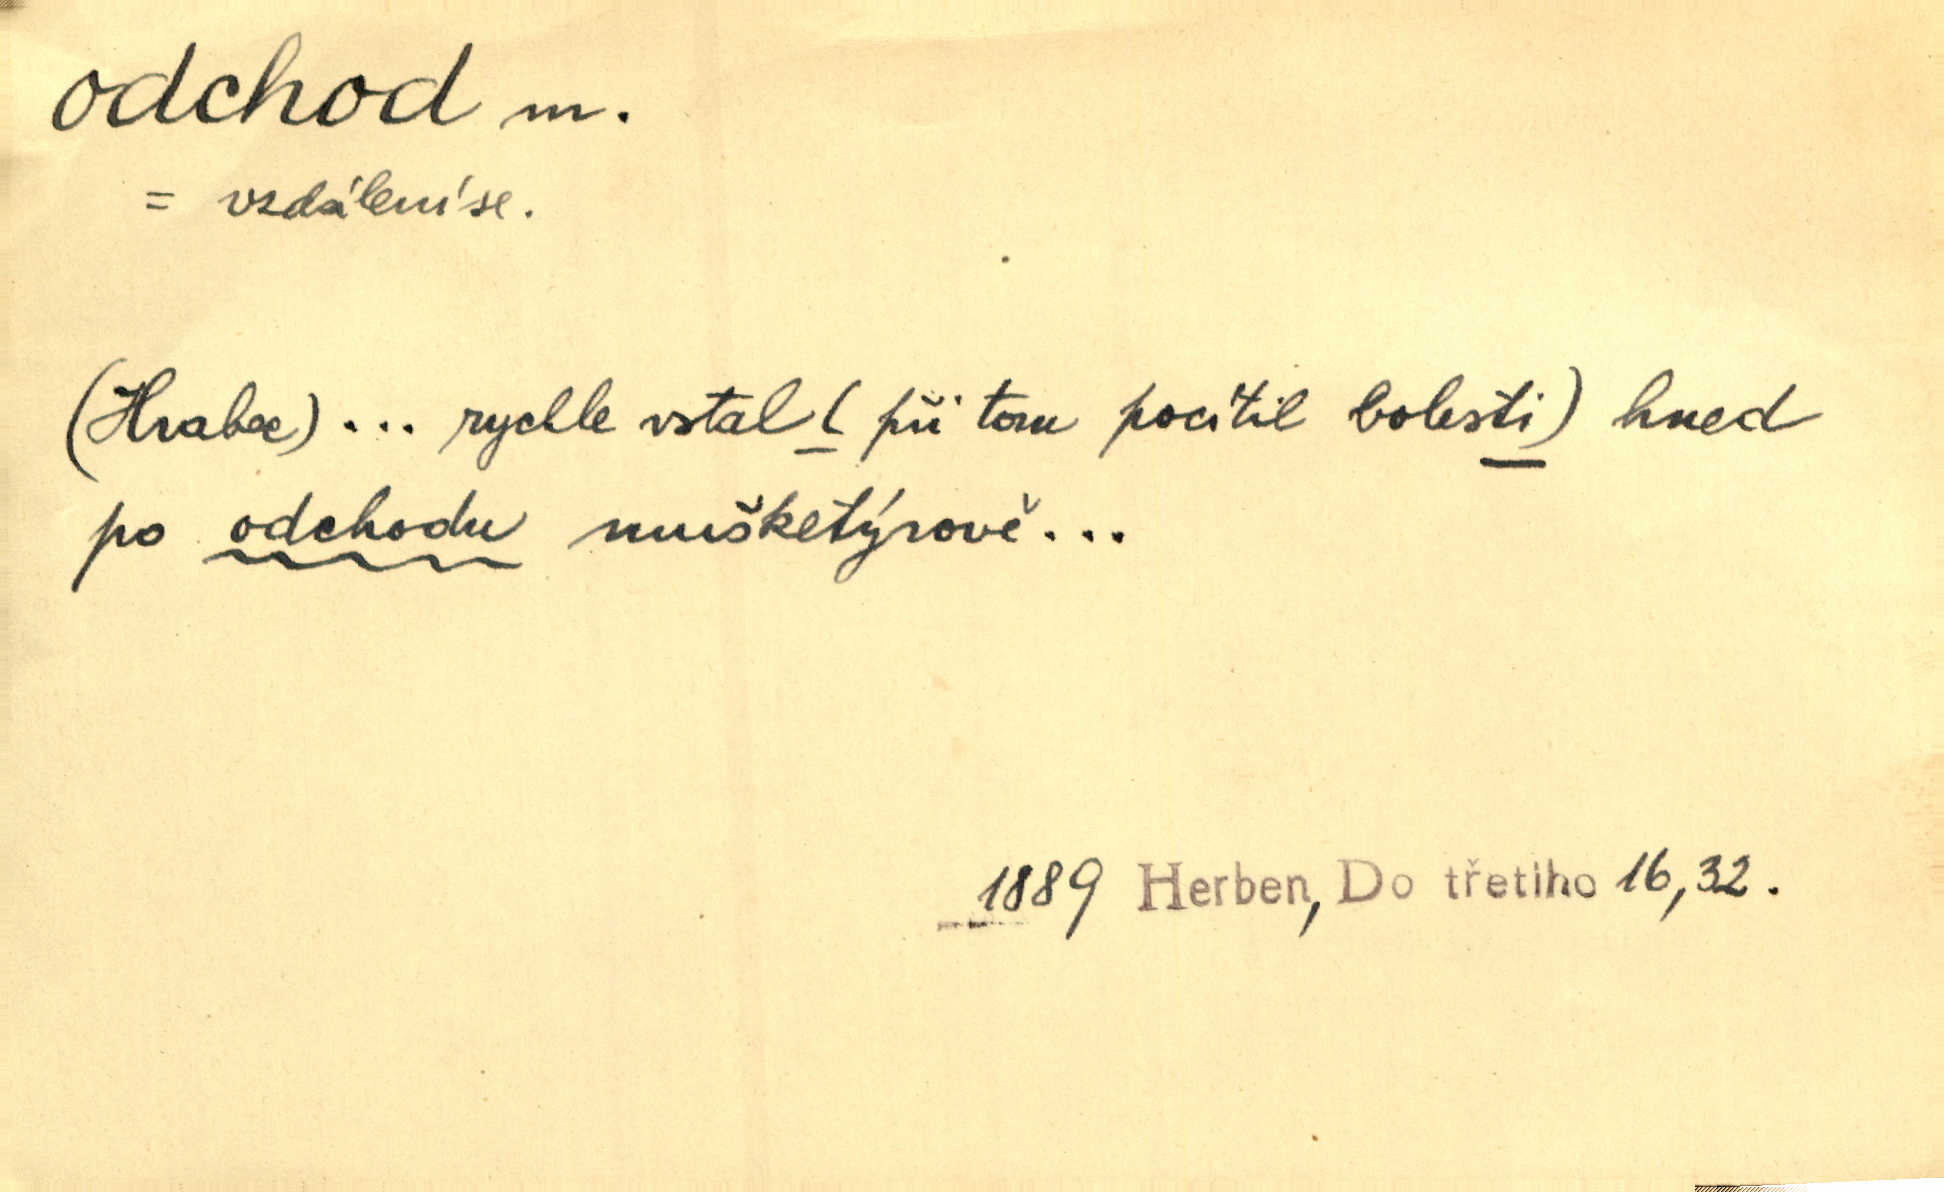 odchod m.
= vzdálení se.
(Hrabec) ... rychle vstal ( při tom pocítil bolesti) hned
po odchodu mušketýrově...
1889 Herben, Do třetího 16, 32.